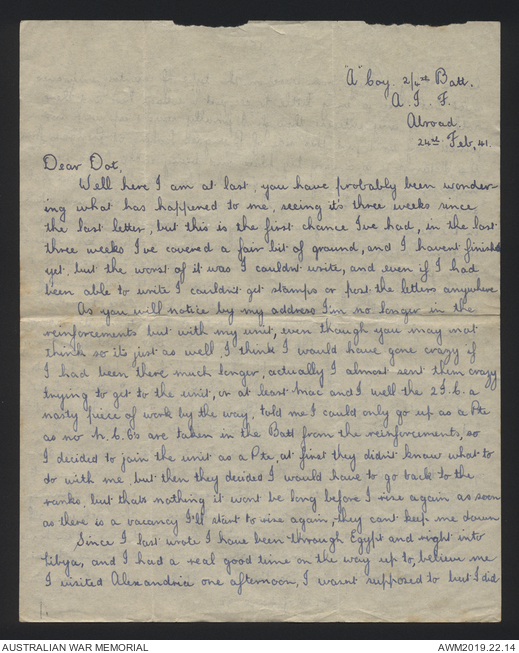 "A" Coy. 2/4th Batt.
A. I. F.
Abroad.
24th Feb, 41.
Dear Dot,
Well here I am at last, you have probably been wonder-
ing what has happened to me, seeing it's three weeks since
the last letter, but this is the first chance I've had, in the last
three weeks I've covered a fair bit of ground, and I havent finished
yet, but the worst of it was I couldn't write, and even if I had
been able to write I couldn't get stamps or post the letters anywhere
As you will notice by my address I'm no longer in the
reinforcements but with my unit, even though you may not
think so its just as well, I think I would have gone crazy if
I had been there much longer, actually I almost sent them crazy
trying to get to the unit, or at least Mac and I, well the 2 I.C. a
nasty piece of work by the way, told me I could only go up as a Pte
as no N.C.Os are taken in the Batt from the reinforcements, so
I decided to join the unit as a Pte, at first they didn't know what to
do with me but then they decided I would have to go back to the
ranks, but thats nothing it wont be long before I rise again as soon
as there is a vacancy I'll start to rise again, they cant keep me down
Since I last wrote I have been through Egypt and right into
Libya, and I had a real good time on the way up to, believe me
I visited Alexandria one afternoon, I wasnt supposed to but I did
1.
AUSTRALIAN WAR MEMORIAL
AWM2019.22.14